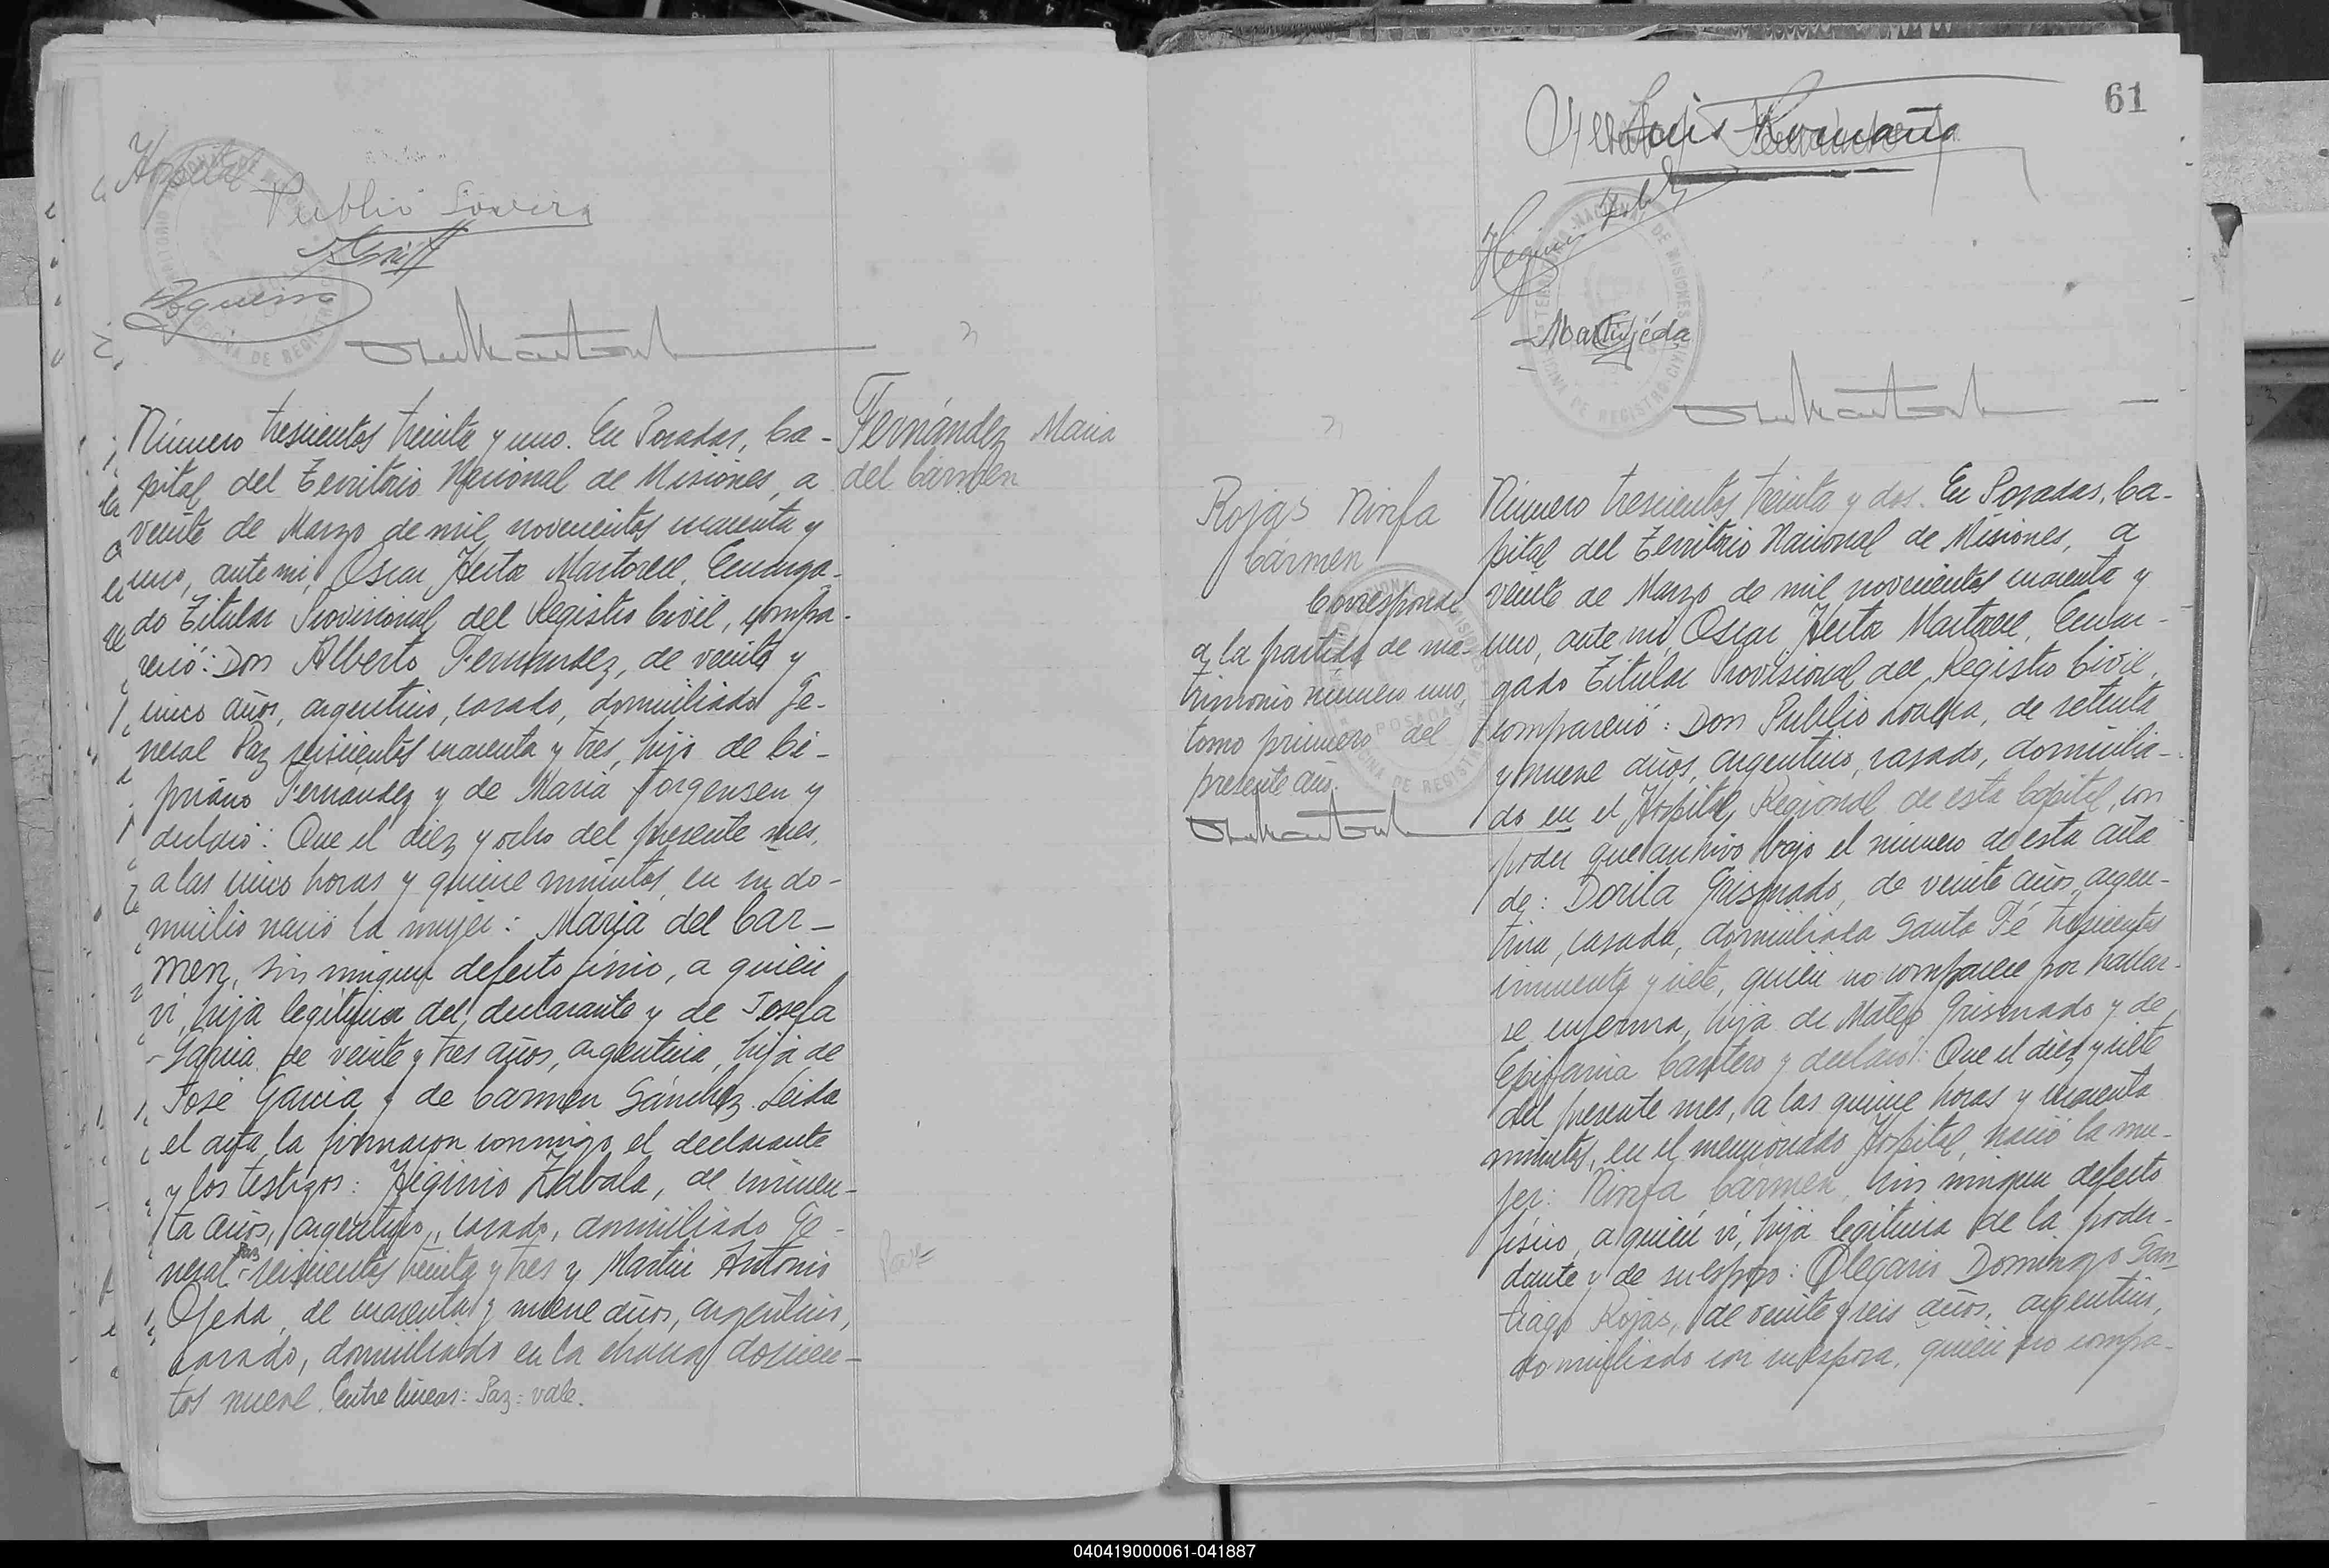 Hospital
Publio
Número trescientos treinta y uno. En Posadas, Ca-
pital del Territorio Nacional de Misiones, a
veinte de Marzo de mil novecientos cuarenta y
uno, ante mí, Oscar Hector Martorell, Encarga-
do Titular Provisional del Registro Civil, compa-
reció: Don Alberto Fernandez, de veinte y
cinco años, argentino, casado, domiciliado Ge-
neral Paz seiscientos cuarenta y tres, hijo de Ci-
priano Fernandez y de María Jorgensen y
declaró: Que el diez y ocho del presente mes,
a las cinco horas y quince minutos, en su do-
micilio nació la mujer: María del Car-
men, sin ningun defecto físico, a quién
ví, hija legítima del declarante y de Josefa
García de veinte y tres años, argentina, hija de
José García y de Carmen Sánchez. Leida
el acta, la firmaron conmigo, el declarante
y los testigos: Higinio Zabala, de cincuen-
ta años, argentino, casado, domiciliado Ge-
Paz
neral seiscientos treinta y tres y Martin Antonio
Ojeda, de cuarenta y nueve años, argentino,
casado, domiciliado en la chacra doscien-
tos nueve. Entre lineas: Paz: vale.
Fernández María
del Cármen
Paz
61
Luis
Higinio
Martojeda
Rojas Ninfa
Cármen
Corresponde
a la partida de ma-
trimonio número uno,
tomo primero del
presente año.
Número trescientos treinta y dos. En Posadas, Ca-
pital del Territorio Nacional de Misiones, a
veinte de Marzo de mil novecientos cuarenta y
uno, ante mí, Oscar Hector Martorell, Encar-
gado Titular Provisional del Registro Civil,
compareció: Don Publio, de setenta
y nueve años, argentino, casado, domicilia-
do en el Hospital Regional de esta Capital, con
poder que archivo bajo el número de esta acta
de: Dorila Grismado, de veinte años, argen-
tina, casada, domiciliada Santa Fé trescientos
cincuenta y siete, quién no comparece por hallar-
se enferma, hija de Mateo Grismado y de
Epifania Cantero y declaró: Que el diez y siete
del presente mes, a las quince horas y cuarenta
minutos, en el mencionado Hospital, nació la mu-
jer: Ninfa Cármen, sin ningun defecto
físico, a quién ví, hija legítima de la poder-
dante y de su esposo: Olegario Domingo San-
tiago Rojas, de veinte y seis años, argentino,
domiciliado con su esposa, quién no compa-
040419000061-041887